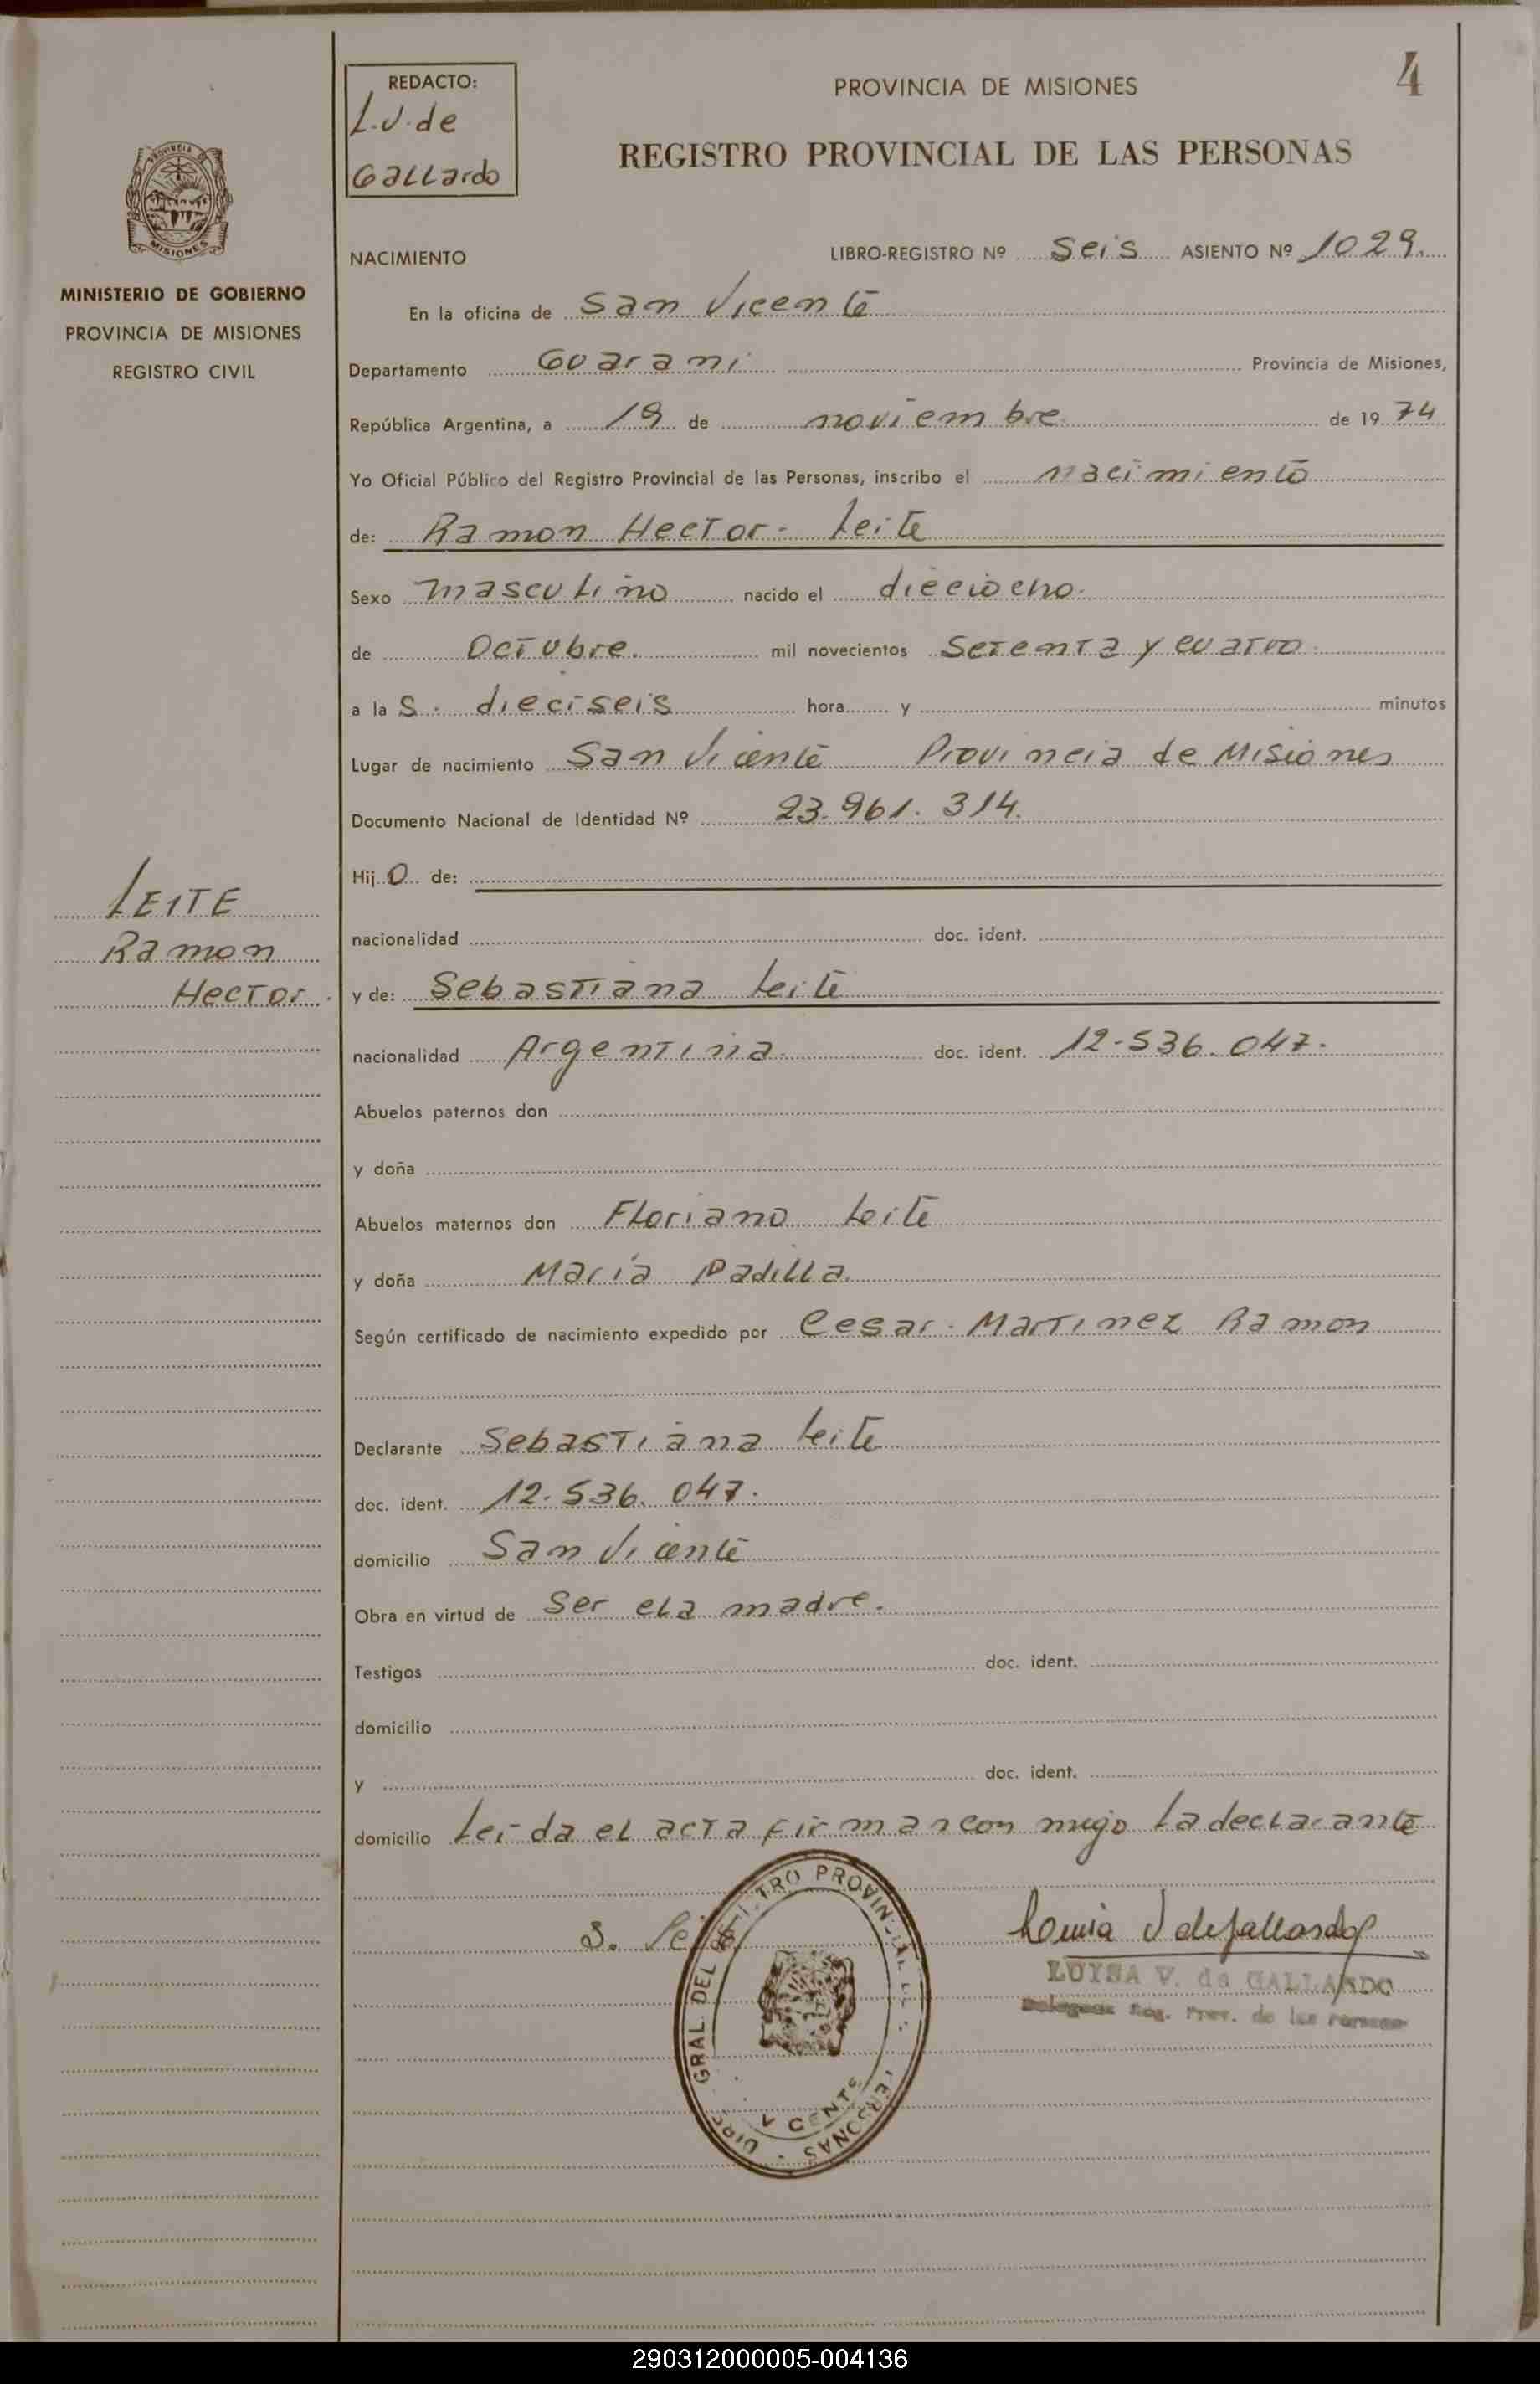 4
REDACTO:
L.V. de
Gallardo
PROVINCIA DE MISIONES
REGISTRO PROVINCIAL DE LAS PERSONAS
PROVINCIA DE
MISIONES
MINISTERIO DE GOBIERNO
PROVINCIA DE MISIONES
REGISTRO CIVIL
NACIMIENTO LIBRO-REGISTRO Nº Seis ASIENTO Nº 1029.
En la oficina de San Vicente
Departamento Guarani Provincia de Misiones,
República Argentina, a 19 de noviembre de 1974
Yo Oficial Público del Registro Provincial de las Personas, inscribo el nacimiento
de: Ramon Hector - Leite
Sexo masculino nacido el dieciocho.
de Octubre. mil novecientos Setenta y cuatro
a las. dieciseis hora y minutos
Lugar de nacimiento San Vicente Provincia de Misiones
Documento Nacional de Identidad Nº 23.961.314.
Hijo de:
nacionalidad doc. ident.
y de: Sebastiana Leite
nacionalidad Argentina doc. ident. 12.536.047.
Abuelos paternos don
y doña
Abuelos maternos don Floriano Leite
y doña María Padilla.
Según certificado de nacimiento expedido por Cesar Martinez Ramon
Declarante Sebastiana Leite
doc. ident. 12.536.047.
domicilio San Vicente
Obra en virtud de Ser ela madre.
Testigos doc. ident.
domicilio
y doc. ident.
domicilio Leida el acta firman con migo la declarante
LEITE
Ramon
Hector.
S. Lei
DIRC. GRAL. DEL REGISTRO PROVINCIAL DE PERSONAS
V CENTE
Louisa V de Gallardo
LUISA V. de GALLARDO
Delegada Reg. Prov. de las Personas
290312000005-004136